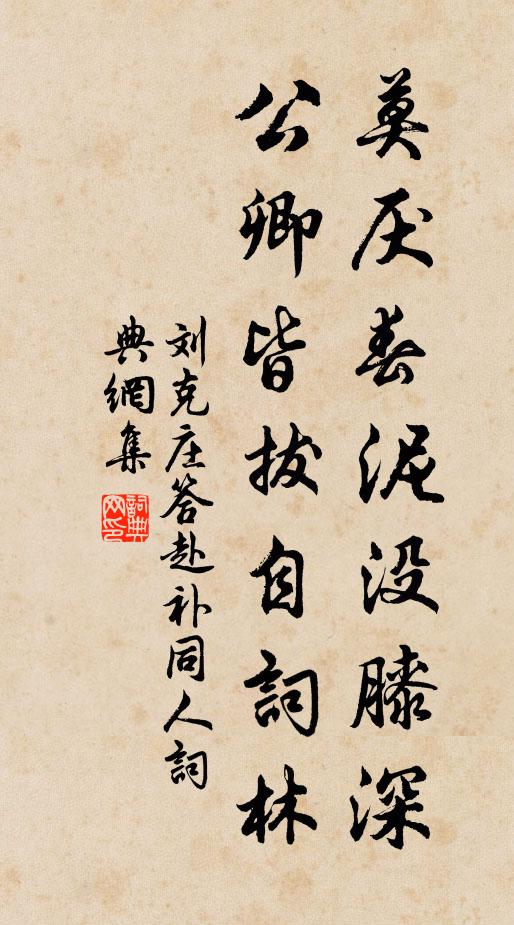 莫厌春泥没膝深
公卿皆拔自詞林
刘克庄答赴补同人詞
典網集
詞典网印